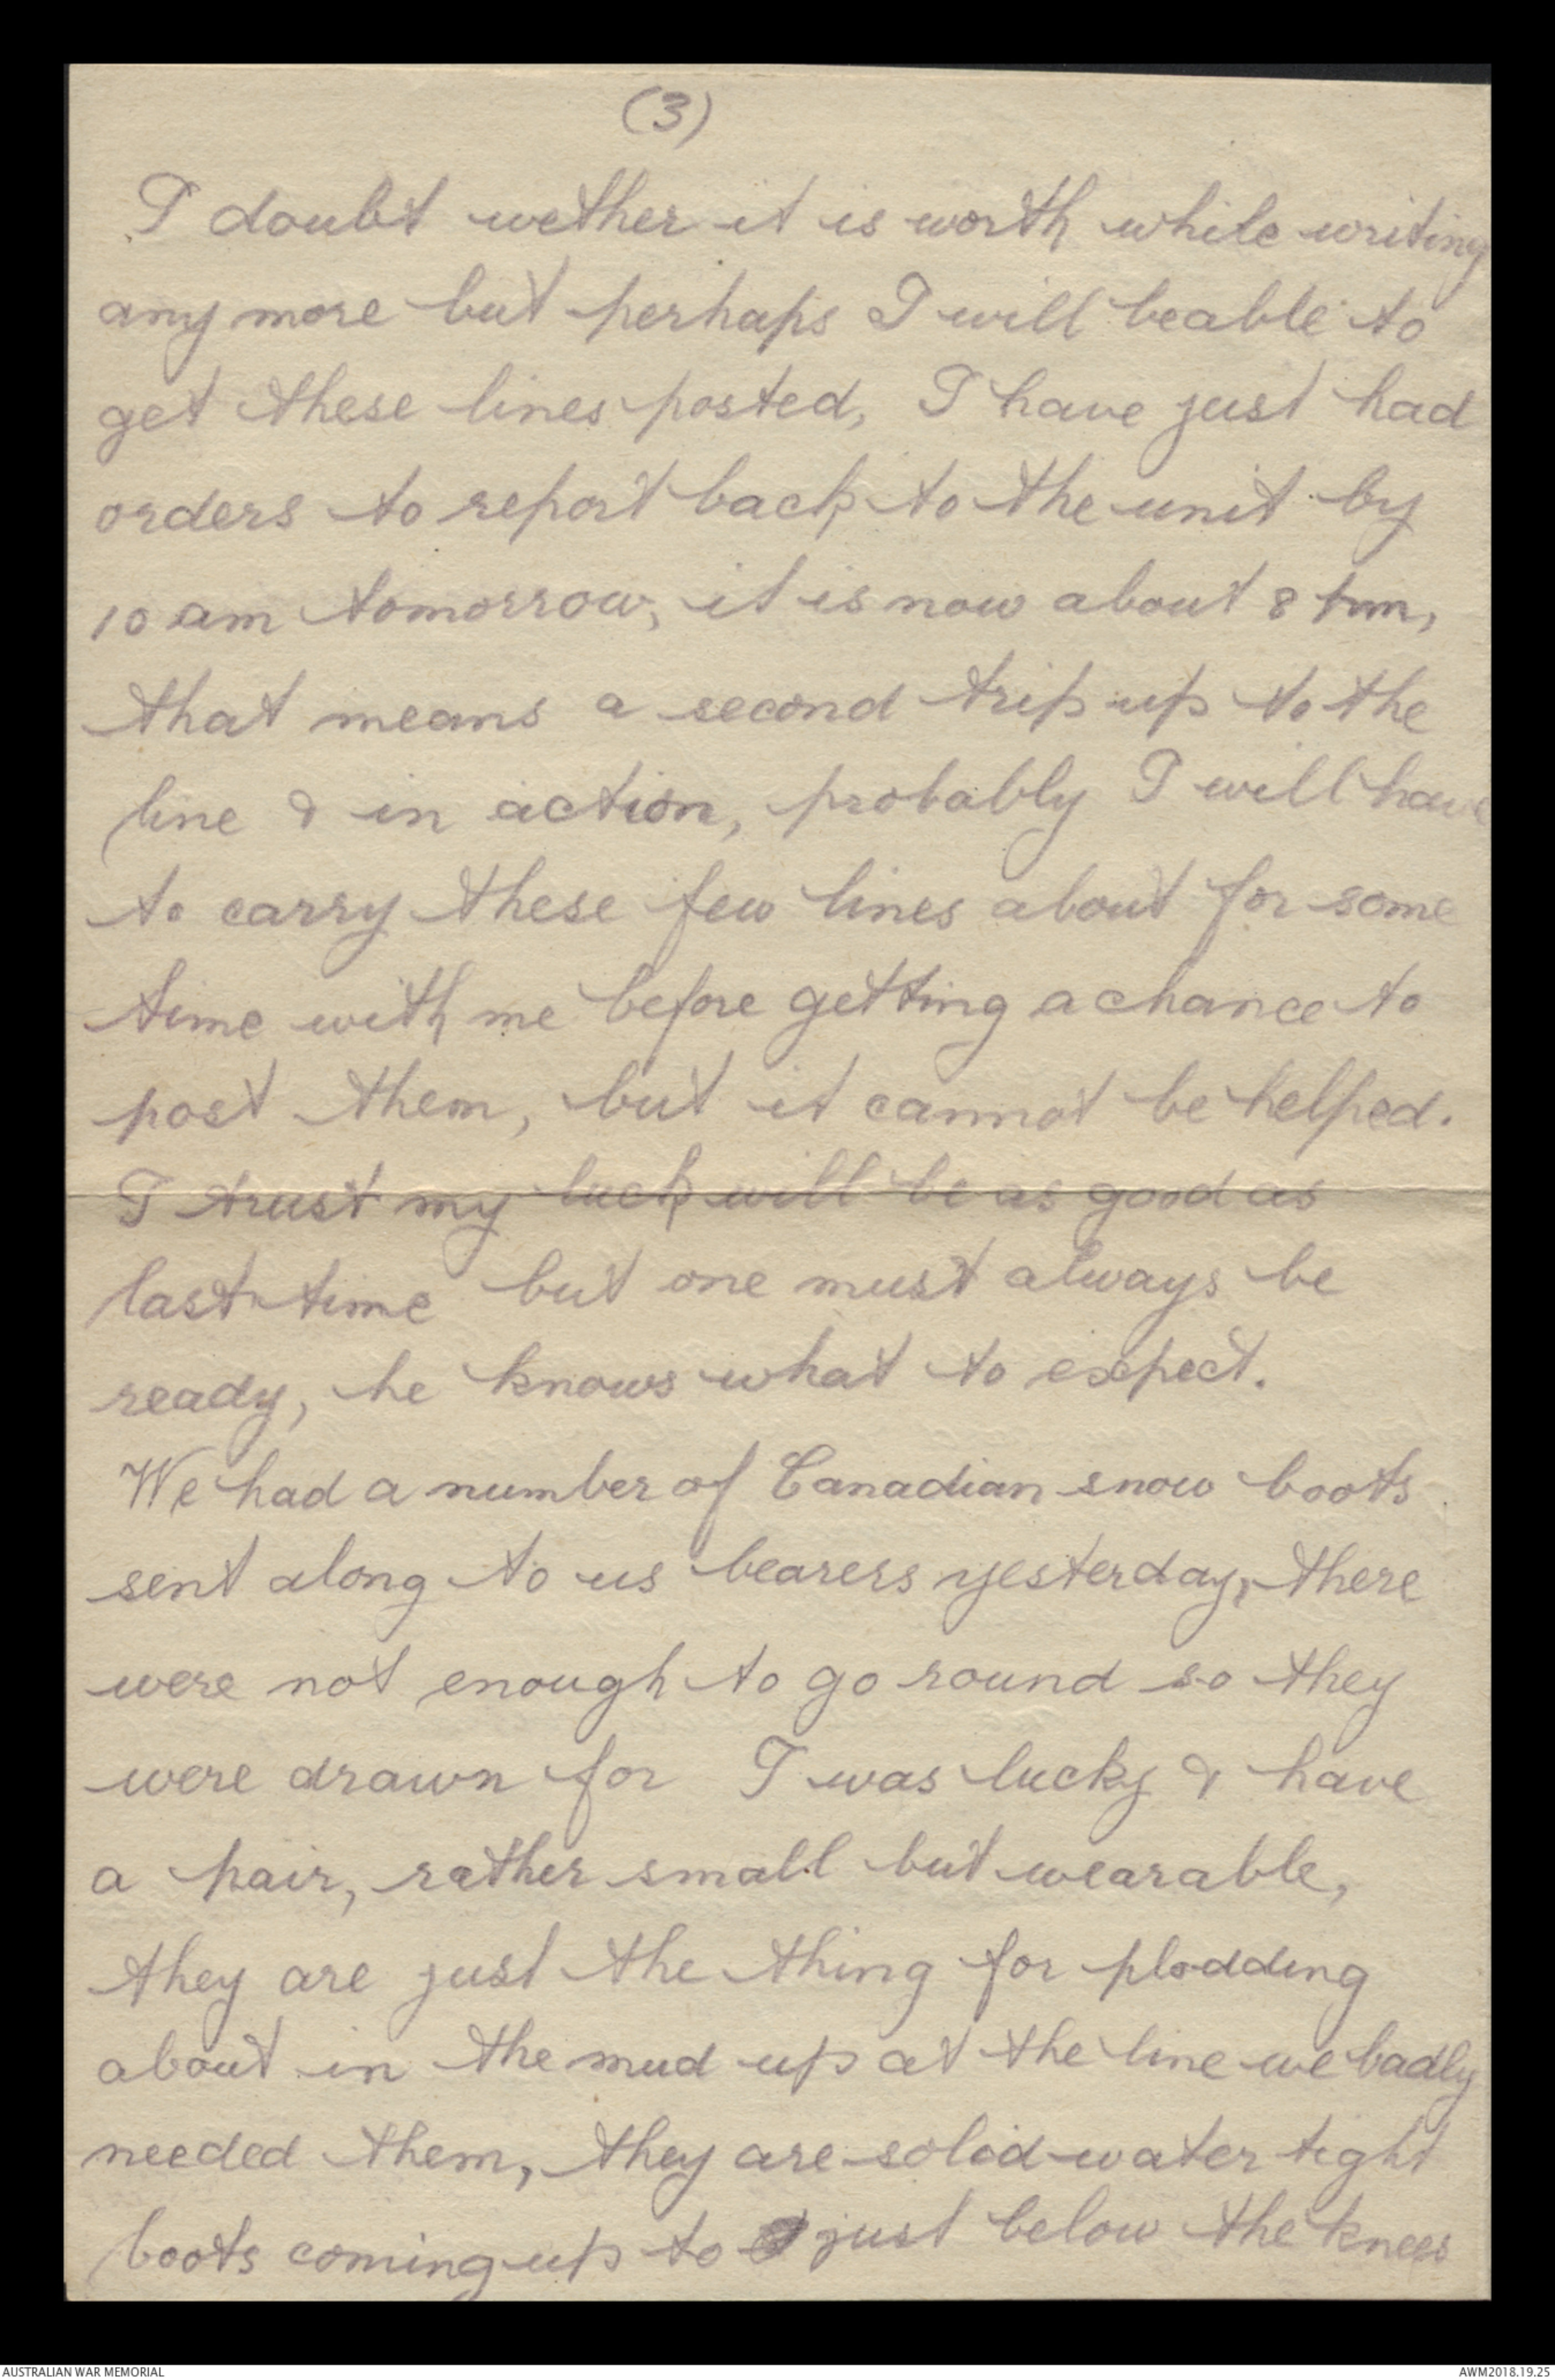 (3)
I doubt wether it is worth while writing
any more but perhaps I will beable to
get these lines posted, I have just had
orders to report back to the unit by
10 am tomorrow, it is now about 8 pm,
that means a second trip up to the
line & in action, probably I will have
to carry these few lines about for some
time with me before getting a chance to
post them, but it cannot be helped.
I trust my luck will be as good as
last time but one must always be
ready, he knows what to expect.
We had a number of Canadian snow boots
sent along to us bearers yesterday, there
were not enough to go round so they
were drawn for I was lucky & have
a pair, rather small but wearable,
they are just the thing for plodding
about in the mud up at the line we badly
needed them, they are solid water tight
boots coming up to just below the knees
AUSTRALIAN WAR MEMORIAL
AWM2018.19.25